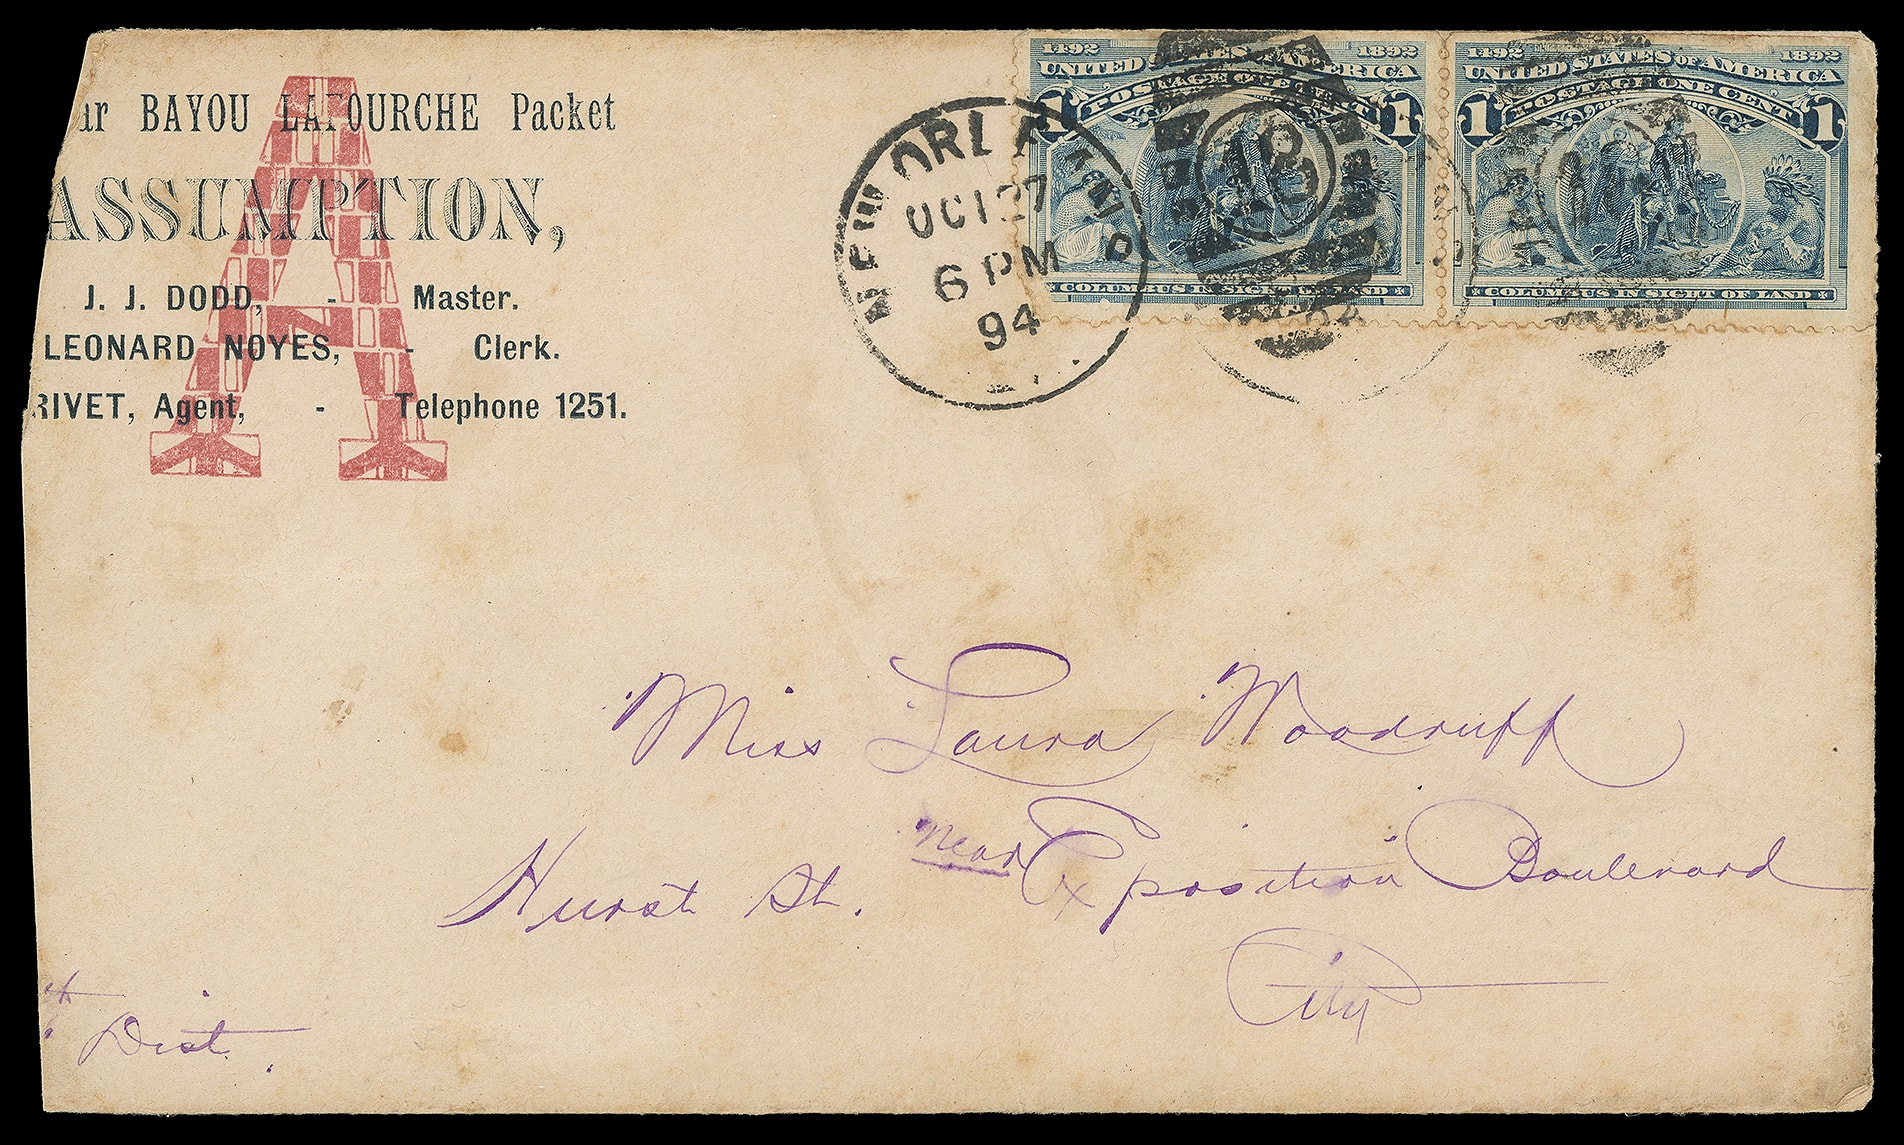 ar BAYOU LAFOURCHE Packet
ASSUMPTION,
J. J. DODD, - Master.
LEONARD NOYES, - Clerk.
RIVET, Agent, - Telephone 1251.
A
NEW ORLEANS
OCT 27
6 PM
94
1492 1892
UNITED STATES OF AMERICA
POSTAGE ONE CENT
1 1
COLUMBUS IN SIGHT OF LAND
1492 1892
UNITED STATES OF AMERICA
POSTAGE ONE CENT
1 1
COLUMBUS IN SIGHT OF LAND
Miss Laura Woodruff
Hurst St. near Exposition Boulevard
City
Dist.